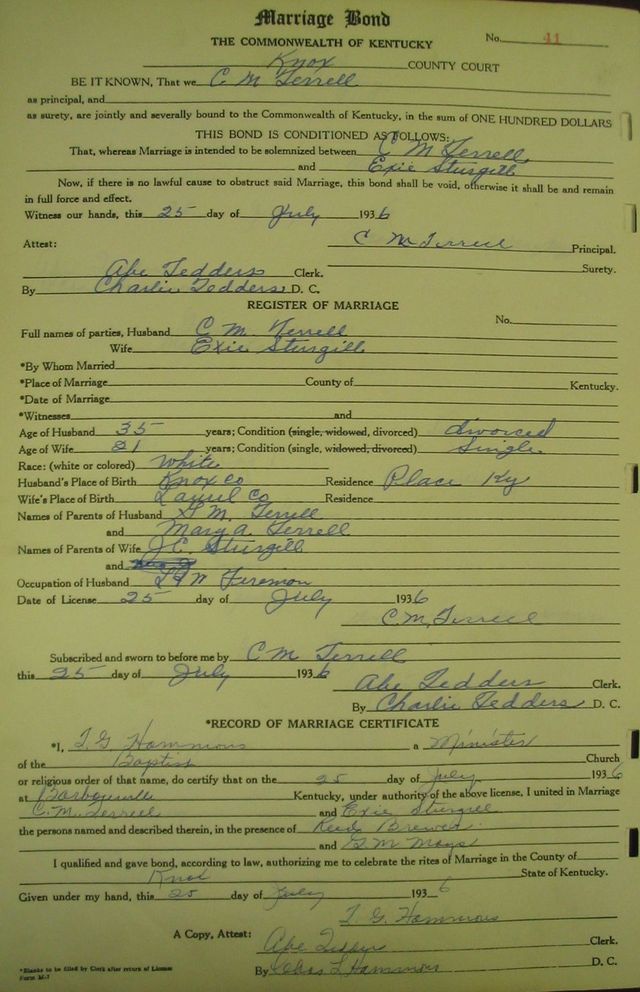 Marriage Bond
THE COMMONWEALTH OF KENTUCKY No. 41
Knox COUNTY COURT
BE IT KNOWN, That we C M Terrell
as principal, and
as surety, are jointly and severally bound to the Commonwealth of Kentucky, in the sum of ONE HUNDRED DOLLARS
THIS BOND IS CONDITIONED AS FOLLOWS:
That, whereas Marriage is intended to be solemnized between C M Terrell
and Exie Sturgill
Now, if there is no lawful cause to obstruct said Marriage, this bond shall be void, otherwise it shall be and remain
in full force and effect.
Witness our hands, this 25 day of July 1936
Attest: C M Terrell Principal.
Surety.
Abe Tedders Clerk.
By Charlie Tedders D. C.
REGISTER OF MARRIAGE
No.
Full names of parties, Husband C. M. Terrell
Wife Exie Sturgill
*By Whom Married
*Place of Marriage County of Kentucky.
*Date of Marriage
*Witnesses and
Age of Husband 35 years; Condition (single, widowed, divorced) divorced
Age of Wife 21 years; Condition (single, widowed, divorced) Single
Race: (white or colored) White
Husband's Place of Birth Knox co Residence Place Ky
Wife's Place of Birth Laurel Co Residence
Names of Parents of Husband M. Terrell
and Mary A. Terrell
Names of Parents of Wife J.C. Sturgill
and
Occupation of Husband L & N Fireman
Date of License 25 day of July 1936
C M, Terrell
Subscribed and sworn to before me by C M Terrell
this 25 day of July 1936
Abe Tedders Clerk.
By Charlie Tedders D. C.
*RECORD OF MARRIAGE CERTIFICATE
*I, T. G. Hammons a Minister
of the Baptist Church
or religious order of that name, do certify that on the 25 day of July 1936
at Barbourville Kentucky, under authority of the above license, I united in Marriage
C. M. Terrell and Exie Sturgill
the persons named and described therein, in the presence of Reed Brewer
and G. M. Mays
I qualified and gave bond, according to law, authorizing me to celebrate the rites of Marriage in the County of
Knox State of Kentucky.
Given under my hand, this 25 day of July 1936
T. G. Hammons
A Copy, Attest: Abe Tedders Clerk.
By Chas L Hammons D. C.
*Blanks to be filled by Clerk after return of License
Form M-7